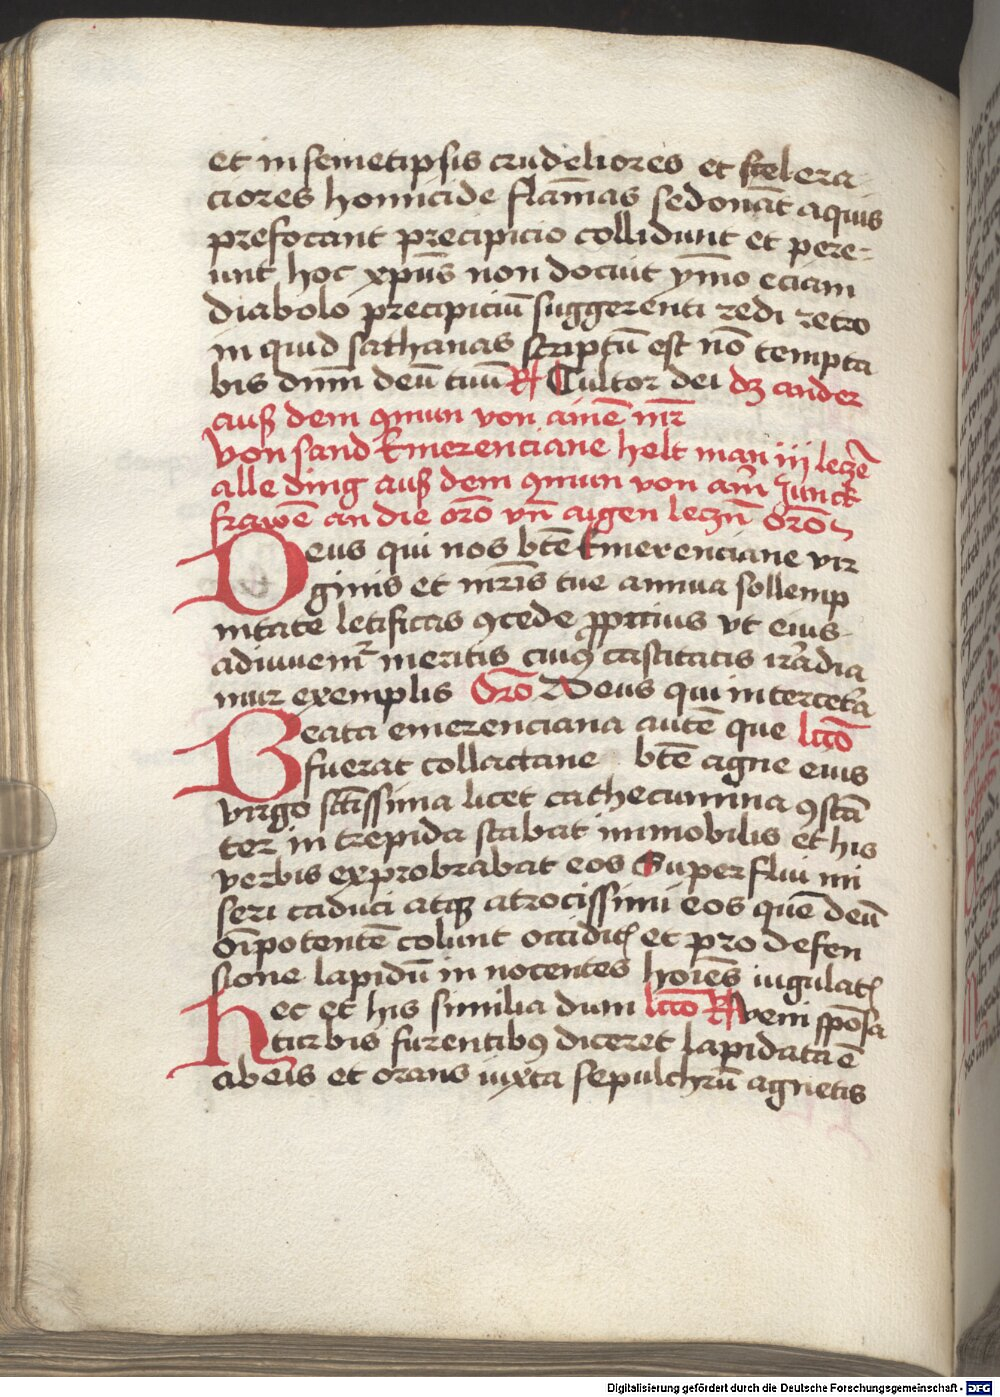 et in semetipsis crudeliores et scelera-
ciores homicide flam̄as se donāt aquis
prefocant precipicio collidunt et pere-
unt hoc xp̄us non docuit ymo eciam
diabolo precipiciū suggerenti redi retro
in quid sathanas scriptū est nō tempta
bis dnm̄ deū tuū R Cultor dei dz ander
auß dem 9mun von ainē mr̄
von sand Emerenciane helt man iij leczē
alle ding auß dem 9mun von ain̄ Junck
frawē an die orō vn̄ aigen leczn̄ orō
Deus qui nos btē Emerenciane vir
ginis et mr̄is tue annua sollemp
nitate letificas 9cede ꝓpitius vt eius
adiuuemr̄ meritis cuiꝰ castitatis irradia
mur exemplis Orō Deus qui interceta
Beata emerenciana autē que lcc̄o
fuerat collactane btē agne eius
virgo sctīssima licet cathecumina 9stā
ter in trepida stabat immobilis et his
verbis exprobrabat eos Superflui mi
seri caduci atqꝫ atrocissimi eos quē deū
oīpotentē colunt occidit(is) et pro defen
sione lapidū in nocentes hoīes iugulat(is)
Hec et his similia dum lcc̄o R veni spōsa
turbis furentibꝰ diceret lapidata ē
ab eis et orans iuxta sepulchrū agnetis
Digitalisierung gefördert durch die Deutsche Forschungsgemeinschaft - DFG